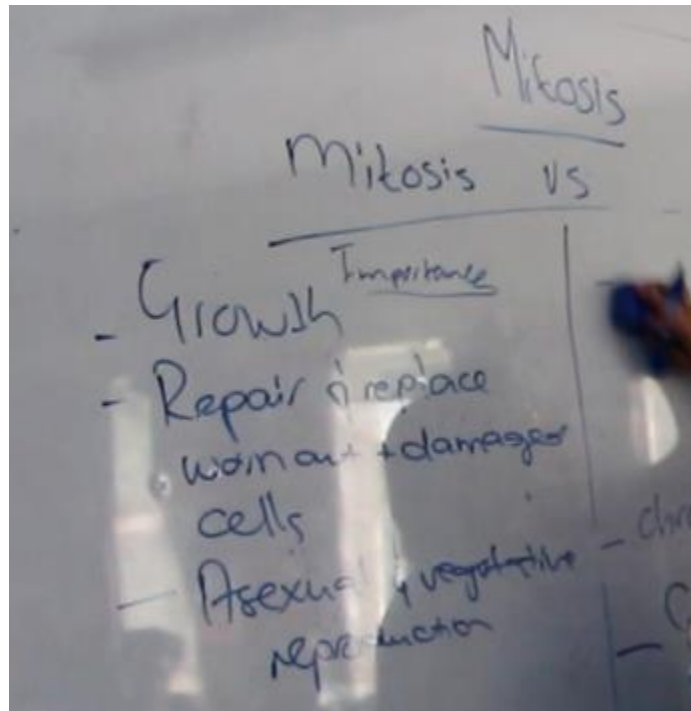 Mitosis
Mitosis vs
Importance
- Growth
- Repair & replace
worn out + damaged
cells
- Asexual & vegetative
reproduction